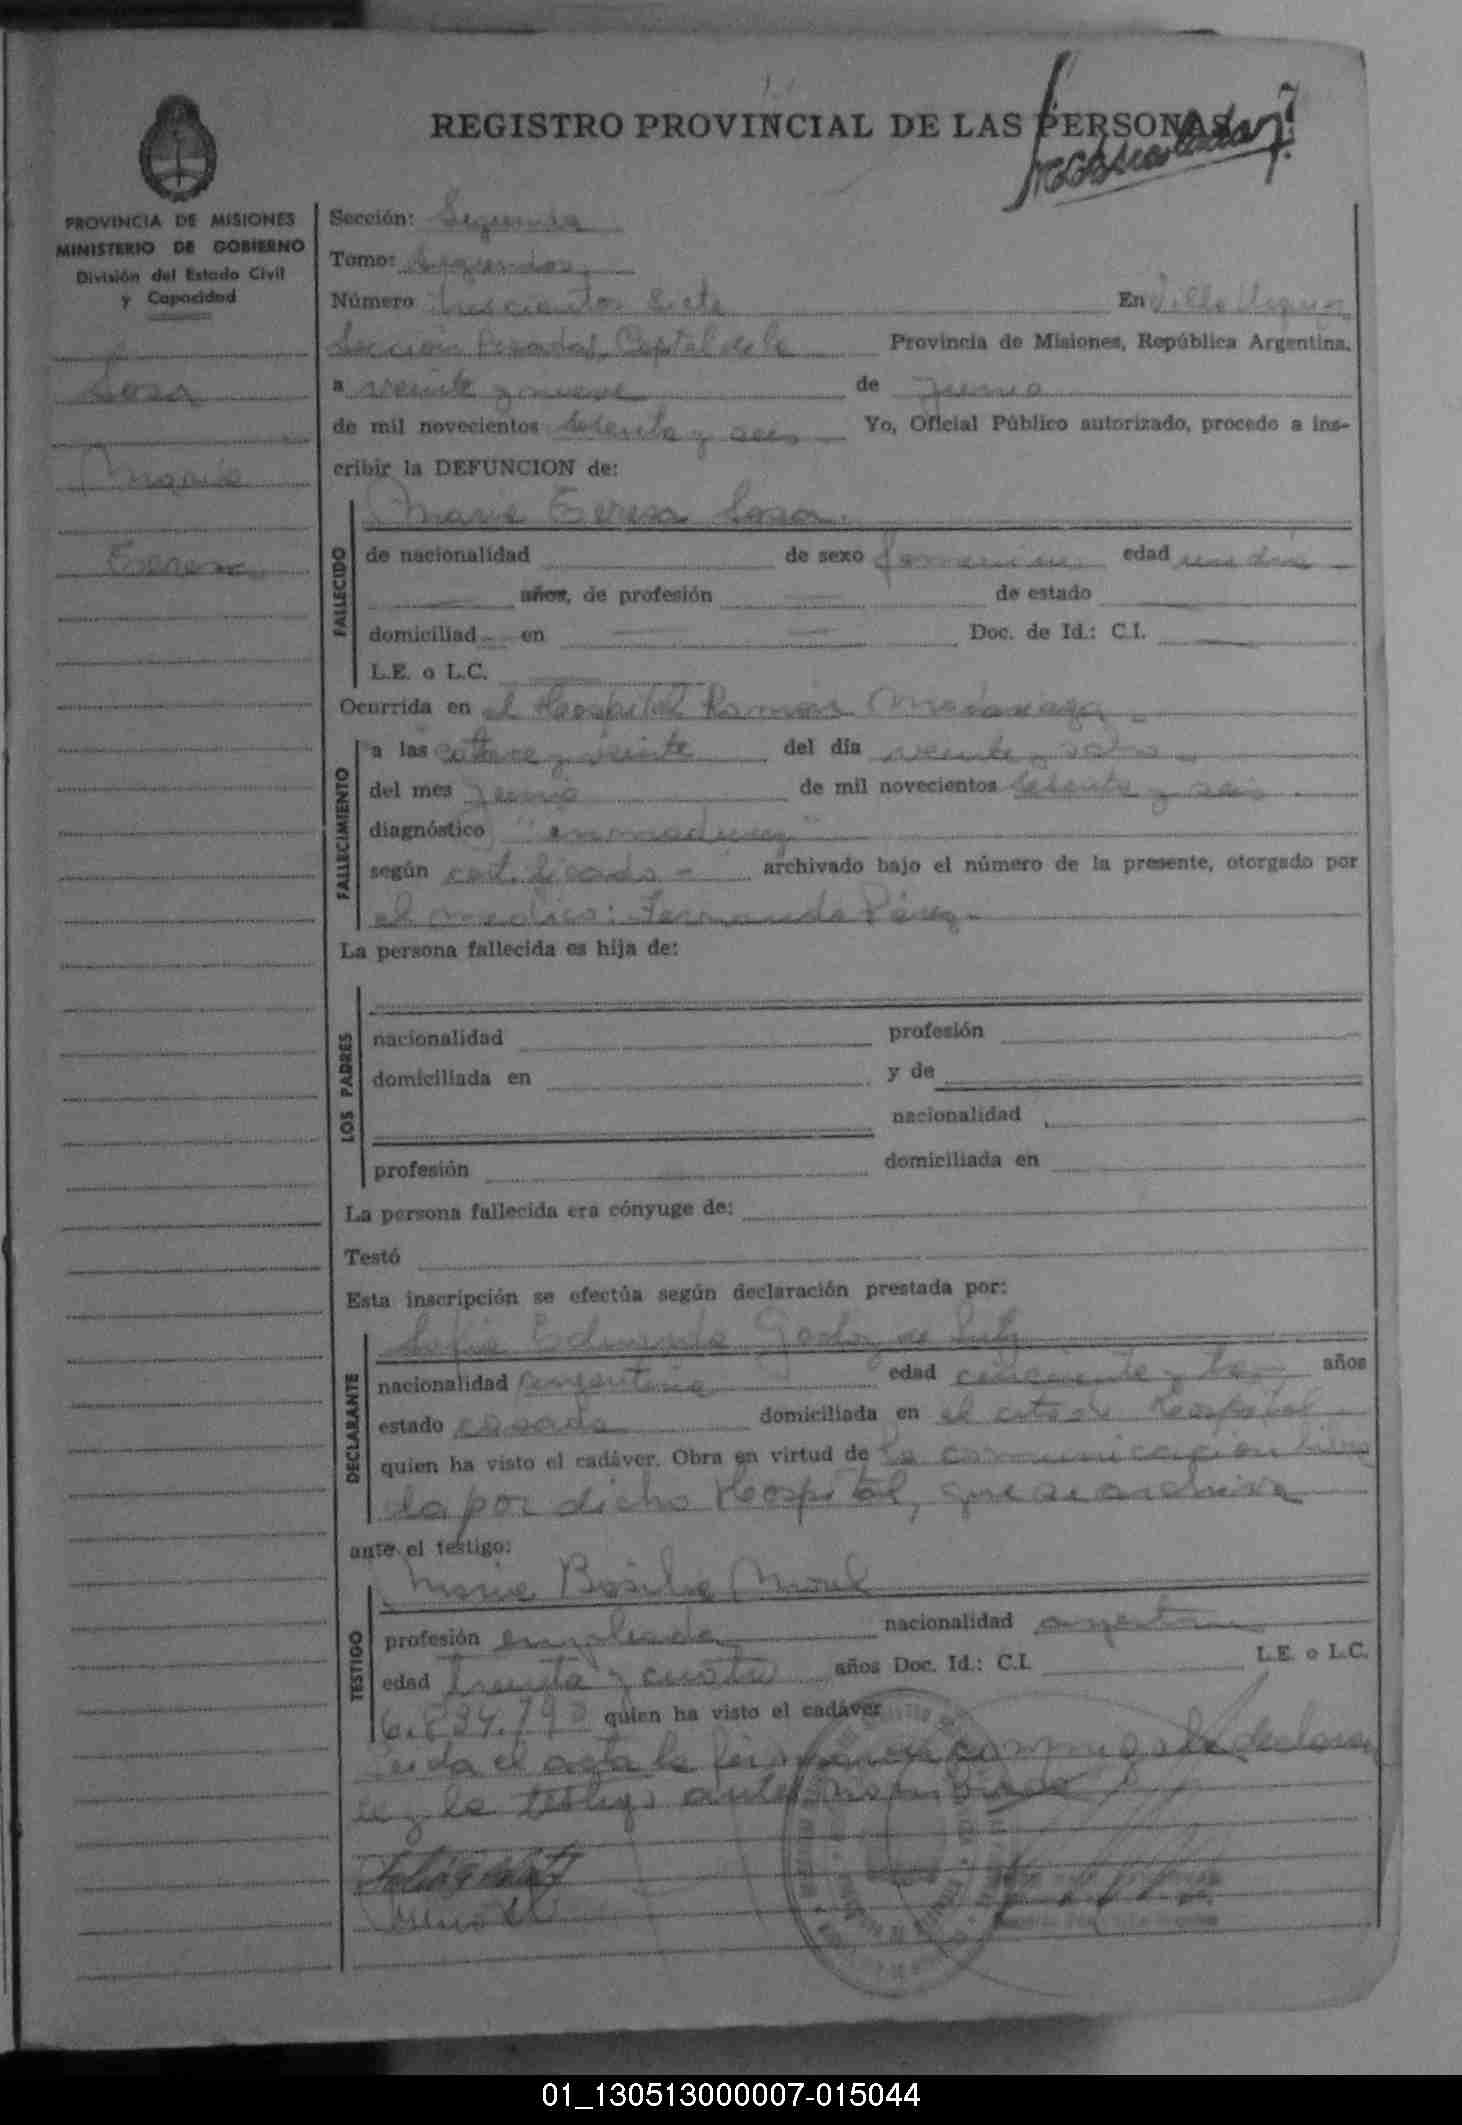 REGISTRO PROVINCIAL DE LAS PERSONAS
PROVINCIA DE MISIONES
MINISTERIO DE GOBIERNO
División del Estado Civil
y Capacidad
Sosa
María
Teresa
Sección: Segunda
Tomo: Segundo
Número trescientos siete En Villa Urquiza
Sección Posadas, Capital de la Provincia de Misiones, República Argentina,
a veinte y nueve de junio
de mil novecientos setenta y seis Yo, Oficial Público autorizado, procedo a ins-
cribir la DEFUNCION de:
María Teresa Sosa
FALLECIDO
de nacionalidad de sexo femenino edad un día
años, de profesión de estado
domiciliad en Doc. de Id.: C.I.
L.E. o L.C.
Ocurrida en el Hospital Ramón Madariaga
FALLECIMIENTO
a las catorce y veinte del día veinte y ocho
del mes junio de mil novecientos setenta y seis
diagnóstico "inmadurez"
según certificado archivado bajo el número de la presente, otorgado por
el médico: Fernando Pérez
La persona fallecida es hija de:
LOS PADRES
nacionalidad profesión
domiciliada en y de
nacionalidad
profesión domiciliada en
La persona fallecida era cónyuge de:
Testó
Esta inscripción se efectúa según declaración prestada por:
DECLARANTE
Sofía Godoy de
nacionalidad argentina edad cincuenta y años
estado casada domiciliada en el citado Hospital
quien ha visto el cadáver. Obra en virtud de la comunicación
da por dicho Hospital, que se archiva
ante el testigo:
TESTIGO
María Basilia
profesión empleada nacionalidad argentina
edad treinta y cuatro años Doc. Id.: C.I. L.E. o L.C.
quien ha visto el cadáver
Leida el acta la
y la testigo antes nombrada
01_130513000007-015044